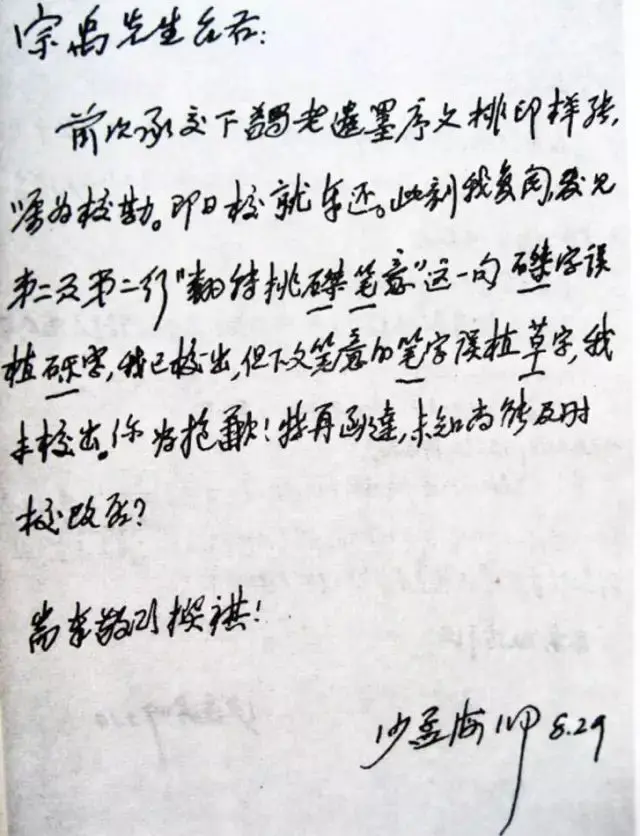 宗禹先生台右：
前次承交下蠲老遗墨序文排印样张，
嘱为校勘。即日校就车还。此刻我复阅，发见
第二页第二行“翻转挑磔笔意”这一句 磔字误
植砾字，我已校出，但下文笔意的笔字误植草字，我
未校出。你为抱歉！特再函达，未知尚能及时
校改否？
耑奉敬颂撰祺！
沙孟海 8.29